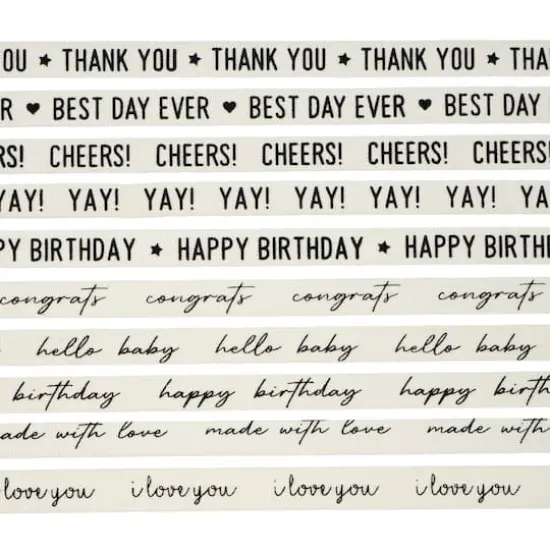 OU ★ THANK YOU ★ THANK YOU ★ THANK YOU ★ THA
R ♥ BEST DAY EVER ♥ BEST DAY EVER ♥ BEST DAY
RS! CHEERS! CHEERS! CHEERS! CHEERS! CHEERS
YAY! YAY! YAY! YAY! YAY! YAY! YAY! YA
PY BIRTHDAY ★ HAPPY BIRTHDAY ★ HAPPY BIRTH
congrats congrats congrats congrats
hello baby hello baby hello baby
birthday happy birthday happy birth
made with love made with love made with
love you i love you i love you i love you